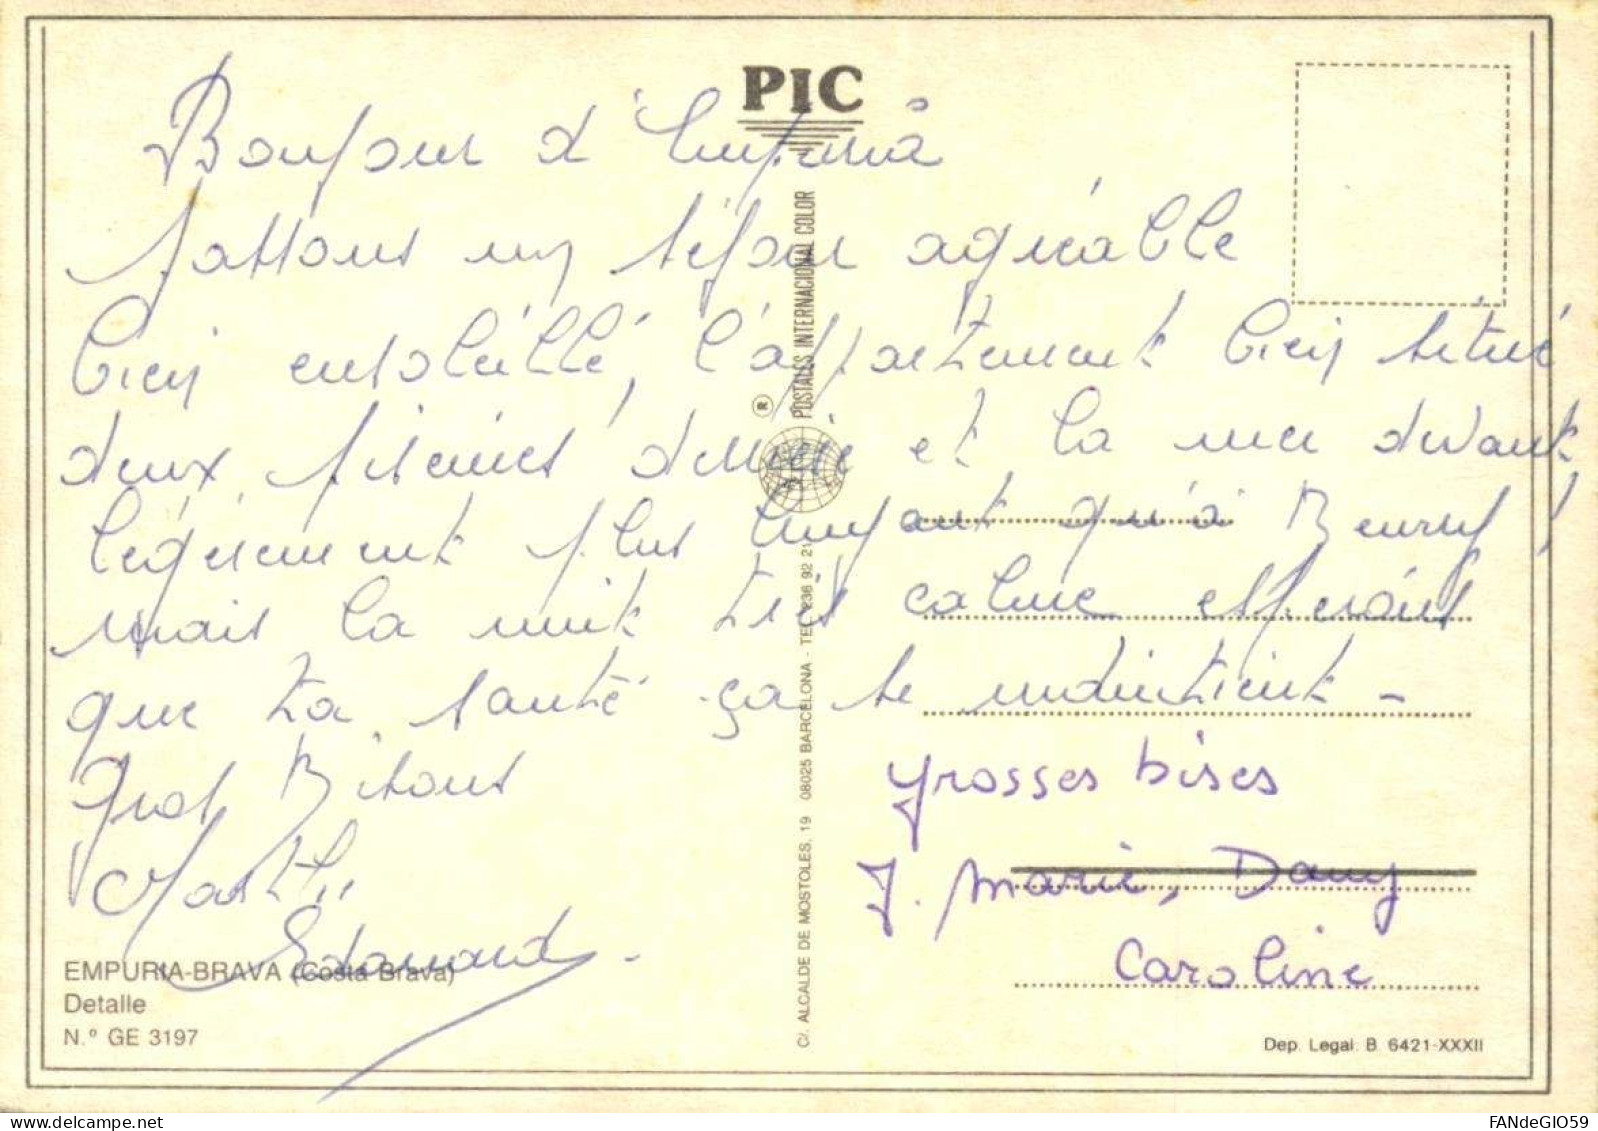 PIC
Bonjour d'Empuria
Passons un séjour agréable
bien ensoleillé, l'appartement bien situé
deux piscines derrière et la mer devant,
légèrement plus bruyant qu'à Beuvry !
mais la nuit très calme espérons
que ta santé ça se maintient -
Gros Bisous
grosses bises
J. Marie, Dany
Caroline
Edouard
POSTALES INTERNACIONAL COLOR
®
C/. ALCALDE DE MOSTOLES, 19 08025 BARCELONA - TEL. 236 92 21
EMPURIA-BRAVA (Costa Brava)
Detalle
N.º GE 3197
Dep. Legal. B. 6421-XXXII
FANdeGIO59